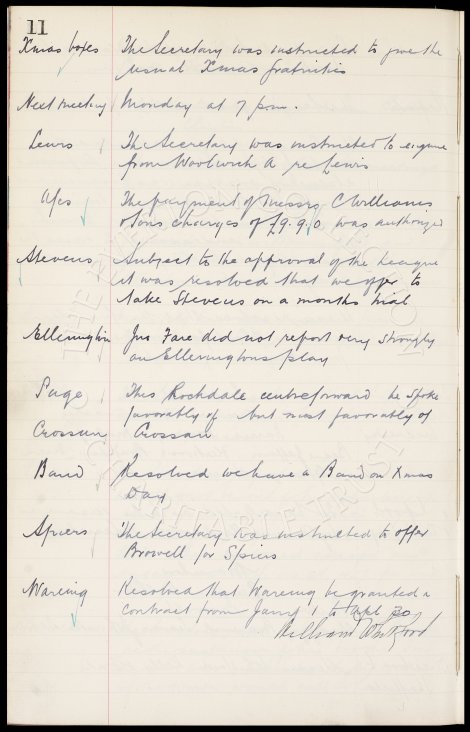 11
Xmas boxes The Secretary was instructed to give the
usual Xmas gratuities
Next meeting Monday at 7 p.m.
Lewis The Secretary was instructed to enquire
from Woolwich A re Lewis
A/cs The payment of Messrs C Williams
& Sons charges of £9.9.0 was authorized
Stevens Subject to the approval of the League
it was resolved that we offer to
take Stevens on a months trial
Ellerington Jno Fare did not report very strongly
on Ellerington's play
Page This Rockdale centreforward he spoke
favorably of but most favorably of
Crossan Crossan
Band Resolved we have a Band on Xmas
Day
Spiers The Secretary was instructed to offer
Browell for Spiers
Wareing Resolved that Wareing be granted a
contract from Jany 1 to Apl 30
William
THE EVERTON COLLECTION
CHARITABLE TRUST